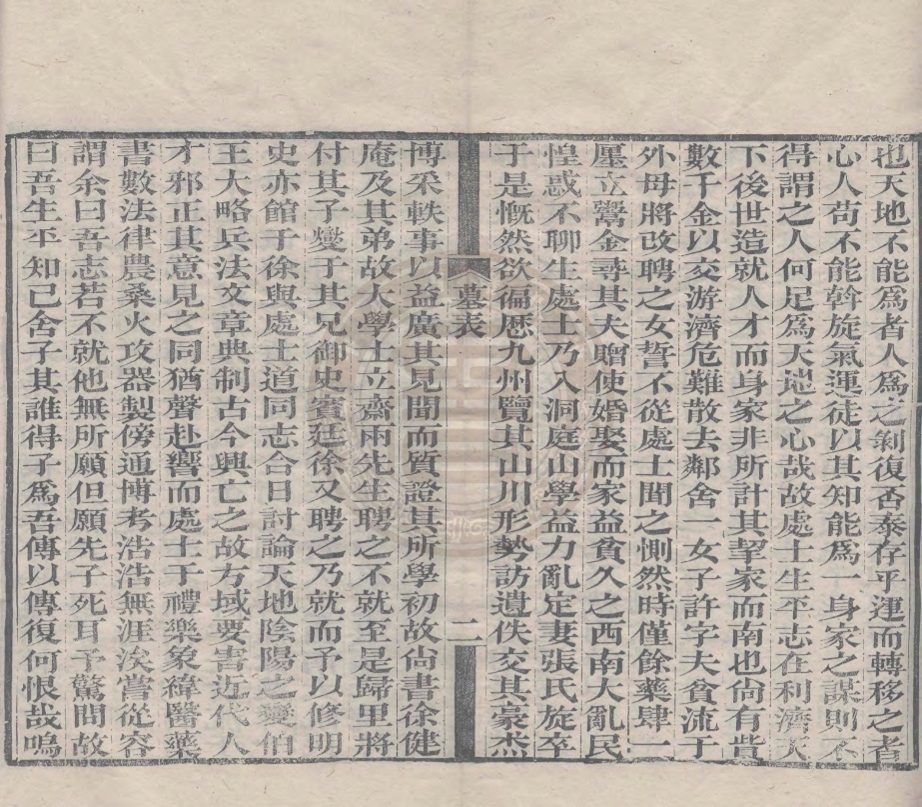 也天地不能爲者人爲之剝復否泰存乎運而轉移之者
心人苟不能斡旋氣運徒以其知能爲一身家之謀則不
得謂之人何足爲天地之心哉故處士生平志在利濟天
下後世造就人才而身家非所計其挈家而南也尙有貲
數千金以交游濟危難散去鄰舍一女子許字夫貧流于
外母將改聘之女誓不從處士聞之惻然時僅餘藥肆一
廛立鬻金尋其夫贈使婚娶而家益貧久之西南大亂民
惶惑不聊生處士乃入洞庭山學益力亂定妻張氏旋卒
于是慨然欲徧歷九州覽其山川形勢訪遺佚交其豪杰
墓表
二
博采軼事以益廣其見聞而質證其所學初故尙書徐健
庵及其弟故大學士立齋兩先生聘之不就至是歸里將
付其子燮于其兄御史賓廷徐又聘之乃就而予以修明
史亦館于徐與處士道同志合日討論天地陰陽之變伯
王大略兵法文章典制古今興亡之故方域要害近代人
才邪正其意見之同猶聲赴響而處士于禮樂象緯醫藥
書數法律農桑火攻器製傍通博考浩浩無涯涘嘗從容
謂余曰吾志若不就他無所願但願先子死耳予驚問故
曰吾生平知己舍子其誰得子爲吾傳以傳復何恨哉嗚